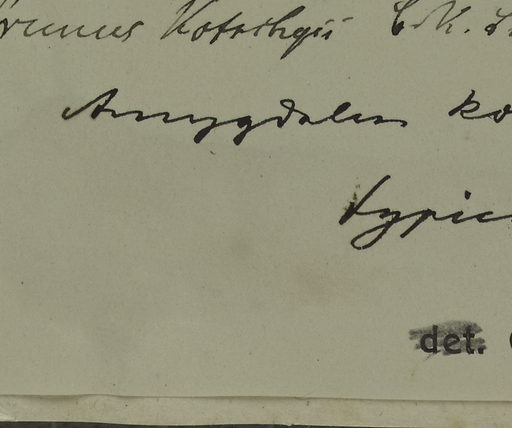 Prunus Kotschyii
Amygdalus ko
typic
det.